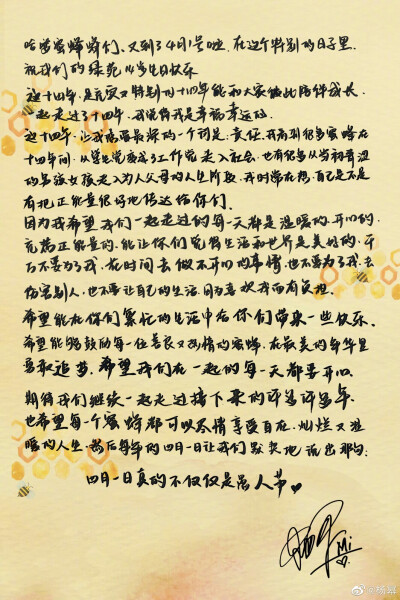 哈喽蜜蜂们,又到了4月1号啦,在这个特别的日子里.
祝我们的绿苑心生日快乐
这十四年,是充实又特别的十四年能和大家彼此陪伴成长.
一起走过了十四年,我觉得我是幸福幸运的.
这十四年,让我感受最深的一个词是:责任,我看到很多蜜蜂在
十四年间,从学生党变成了工作党走入社会,也有很多从当初青涩
的男孩女孩走入为人父母的人生阶段,我时常在想,自己是不是
有把正能量很好地传达给你们.
因为我希望我们一起走过的每一天都是温暖的.开心的.
充满正能量的,能让你们觉得生活和世界是美好的,千
万不要为了我,花时间去做不开心的事情,也不要为了我去
伤害别人,也不要让自己的生活,因为喜欢我而有负担.
希望能在你们繁忙的生活中给你们带来一些快乐.
希望能够鼓励每一位善良又热情的蜜蜂,在最美的年华里
勇敢追梦.希望我们在一起的每一天都要开心.
期待我们继续一起走过接下来的许多许多年.
也希望每一个蜜蜂都可以尽情享受自在,灿烂又温
暖的人生.然后每年的四月一日让我们默契地说出那句:
四月一日真的不仅仅是愚人节♥
Mi
@杨幂